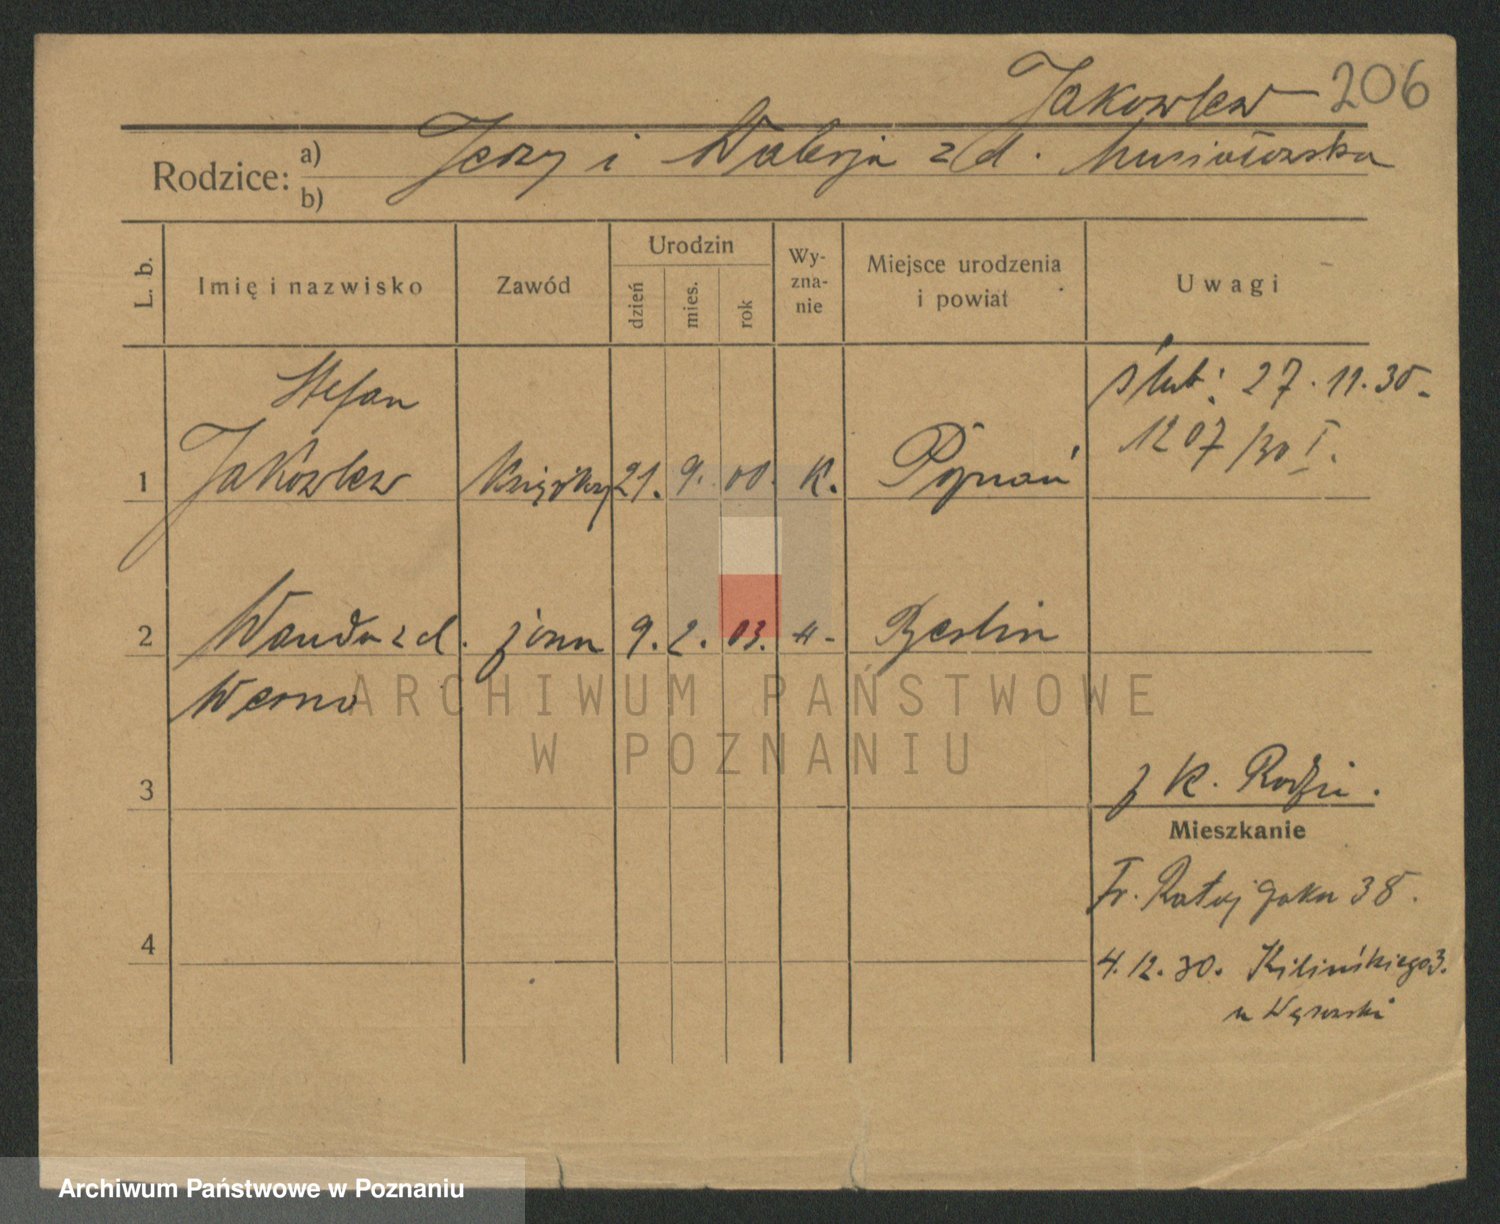 Jakowlew 206
Rodzice: a) b) Jerzy i Walerja z d. Musiałowska
L. b. Imię i nazwisko Zawód Urodzin dzień mies. rok Wy-zna-nie Miejsce urodzenia i powiat Uwagi
Stefan
1 Jakowlew 21. 9. 00. K. Poznań ślub: 27.11.30.
1207/30 I.
2 Wanda z d. żona 9. 2. 03. Berlin
Werno
ARCHIWUM PAŃSTWOWE
W POZNANIU
3 z k. Rodzin.
Mieszkanie
Fr. Ratajczaka 38.
4
4.12.30. Kilińskiego 3.
u
Archiwum Państwowe w Poznaniu